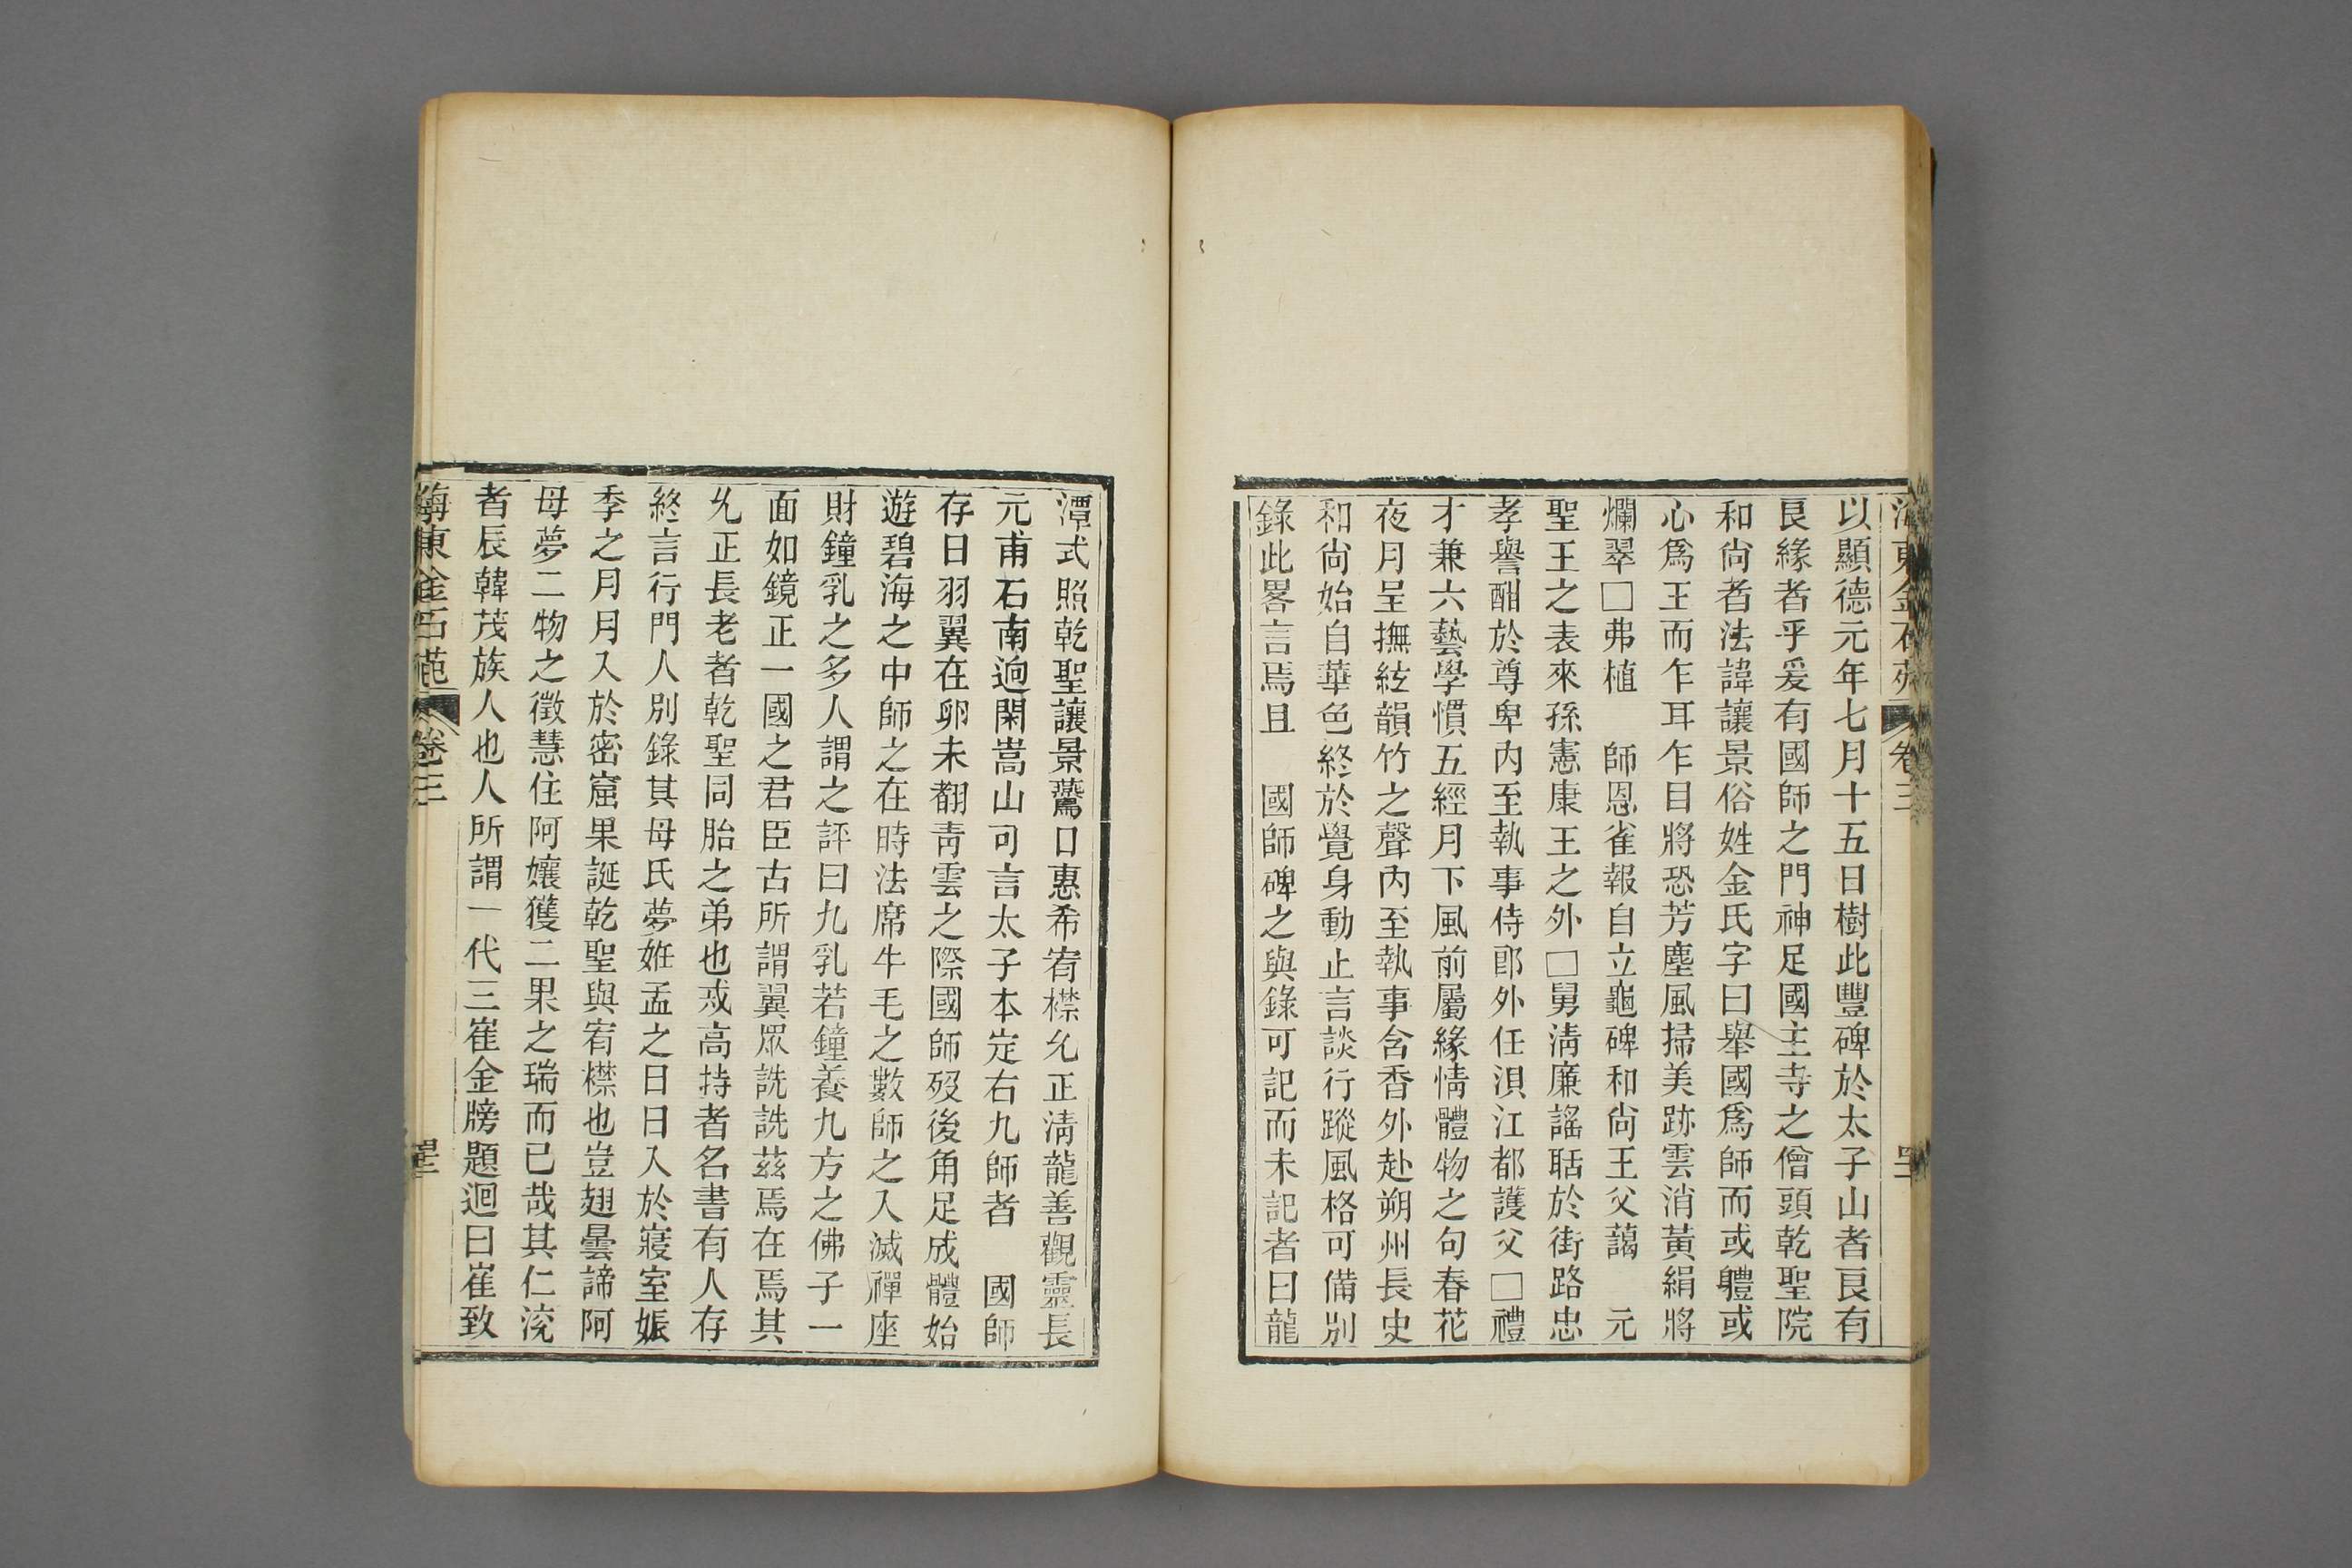 海東金石苑 卷三
以顯德元年七月十五日樹此豐碑於太子山者良有
良緣者乎爰有國師之門神足國主寺之僧頭乾聖院
和尙者法諱讓景俗姓金氏字曰舉國爲師而或軆或
心爲王而乍耳乍目將恐芳塵風掃美跡雲消黃絹將
爛翠□弗植 師恩雀報自立龜碑和尙王父藹 元
聖王之表來孫憲康王之外□舅淸廉謠聒於街路忠
孝譽酣於尊卑內至執事侍郎外任浿江都護父□禮
才兼六藝學慣五經月下風前屬緣情體物之句春花
夜月呈撫絃韻竹之聲內至執事含香外赴朔州長史
和尙始自華色終於覺身動止言談行蹤風格可備別
錄此畧言焉且 國師碑之與錄可記而未記者曰龍
潭式照乾聖讓景鷰口惠希宥襟允正淸龍善觀靈長
元甫石南逈閑嵩山可言太子本定右九師者 國師
存日羽翼在卵未翻靑雲之際國師歿後角足成體始
遊碧海之中師之在時法席牛毛之數師之入滅禪座
財鐘乳之多人謂之評曰九乳若鐘養九方之佛子一
面如鏡正一國之君臣古所謂翼眾詵詵茲焉在焉其
允正長老者乾聖同胎之弟也戒高持者名書有人存
終言行門人別錄其母氏夢姙孟之日日入於寢室娠
季之月月入於密窟果誕乾聖與宥襟也豈翅曇諦阿
母夢二物之徵慧住阿孃獲二果之瑞而已哉其仁渷
者辰韓茂族人也人所謂一代三崔金牓題迴曰崔致
海東金石苑 卷三